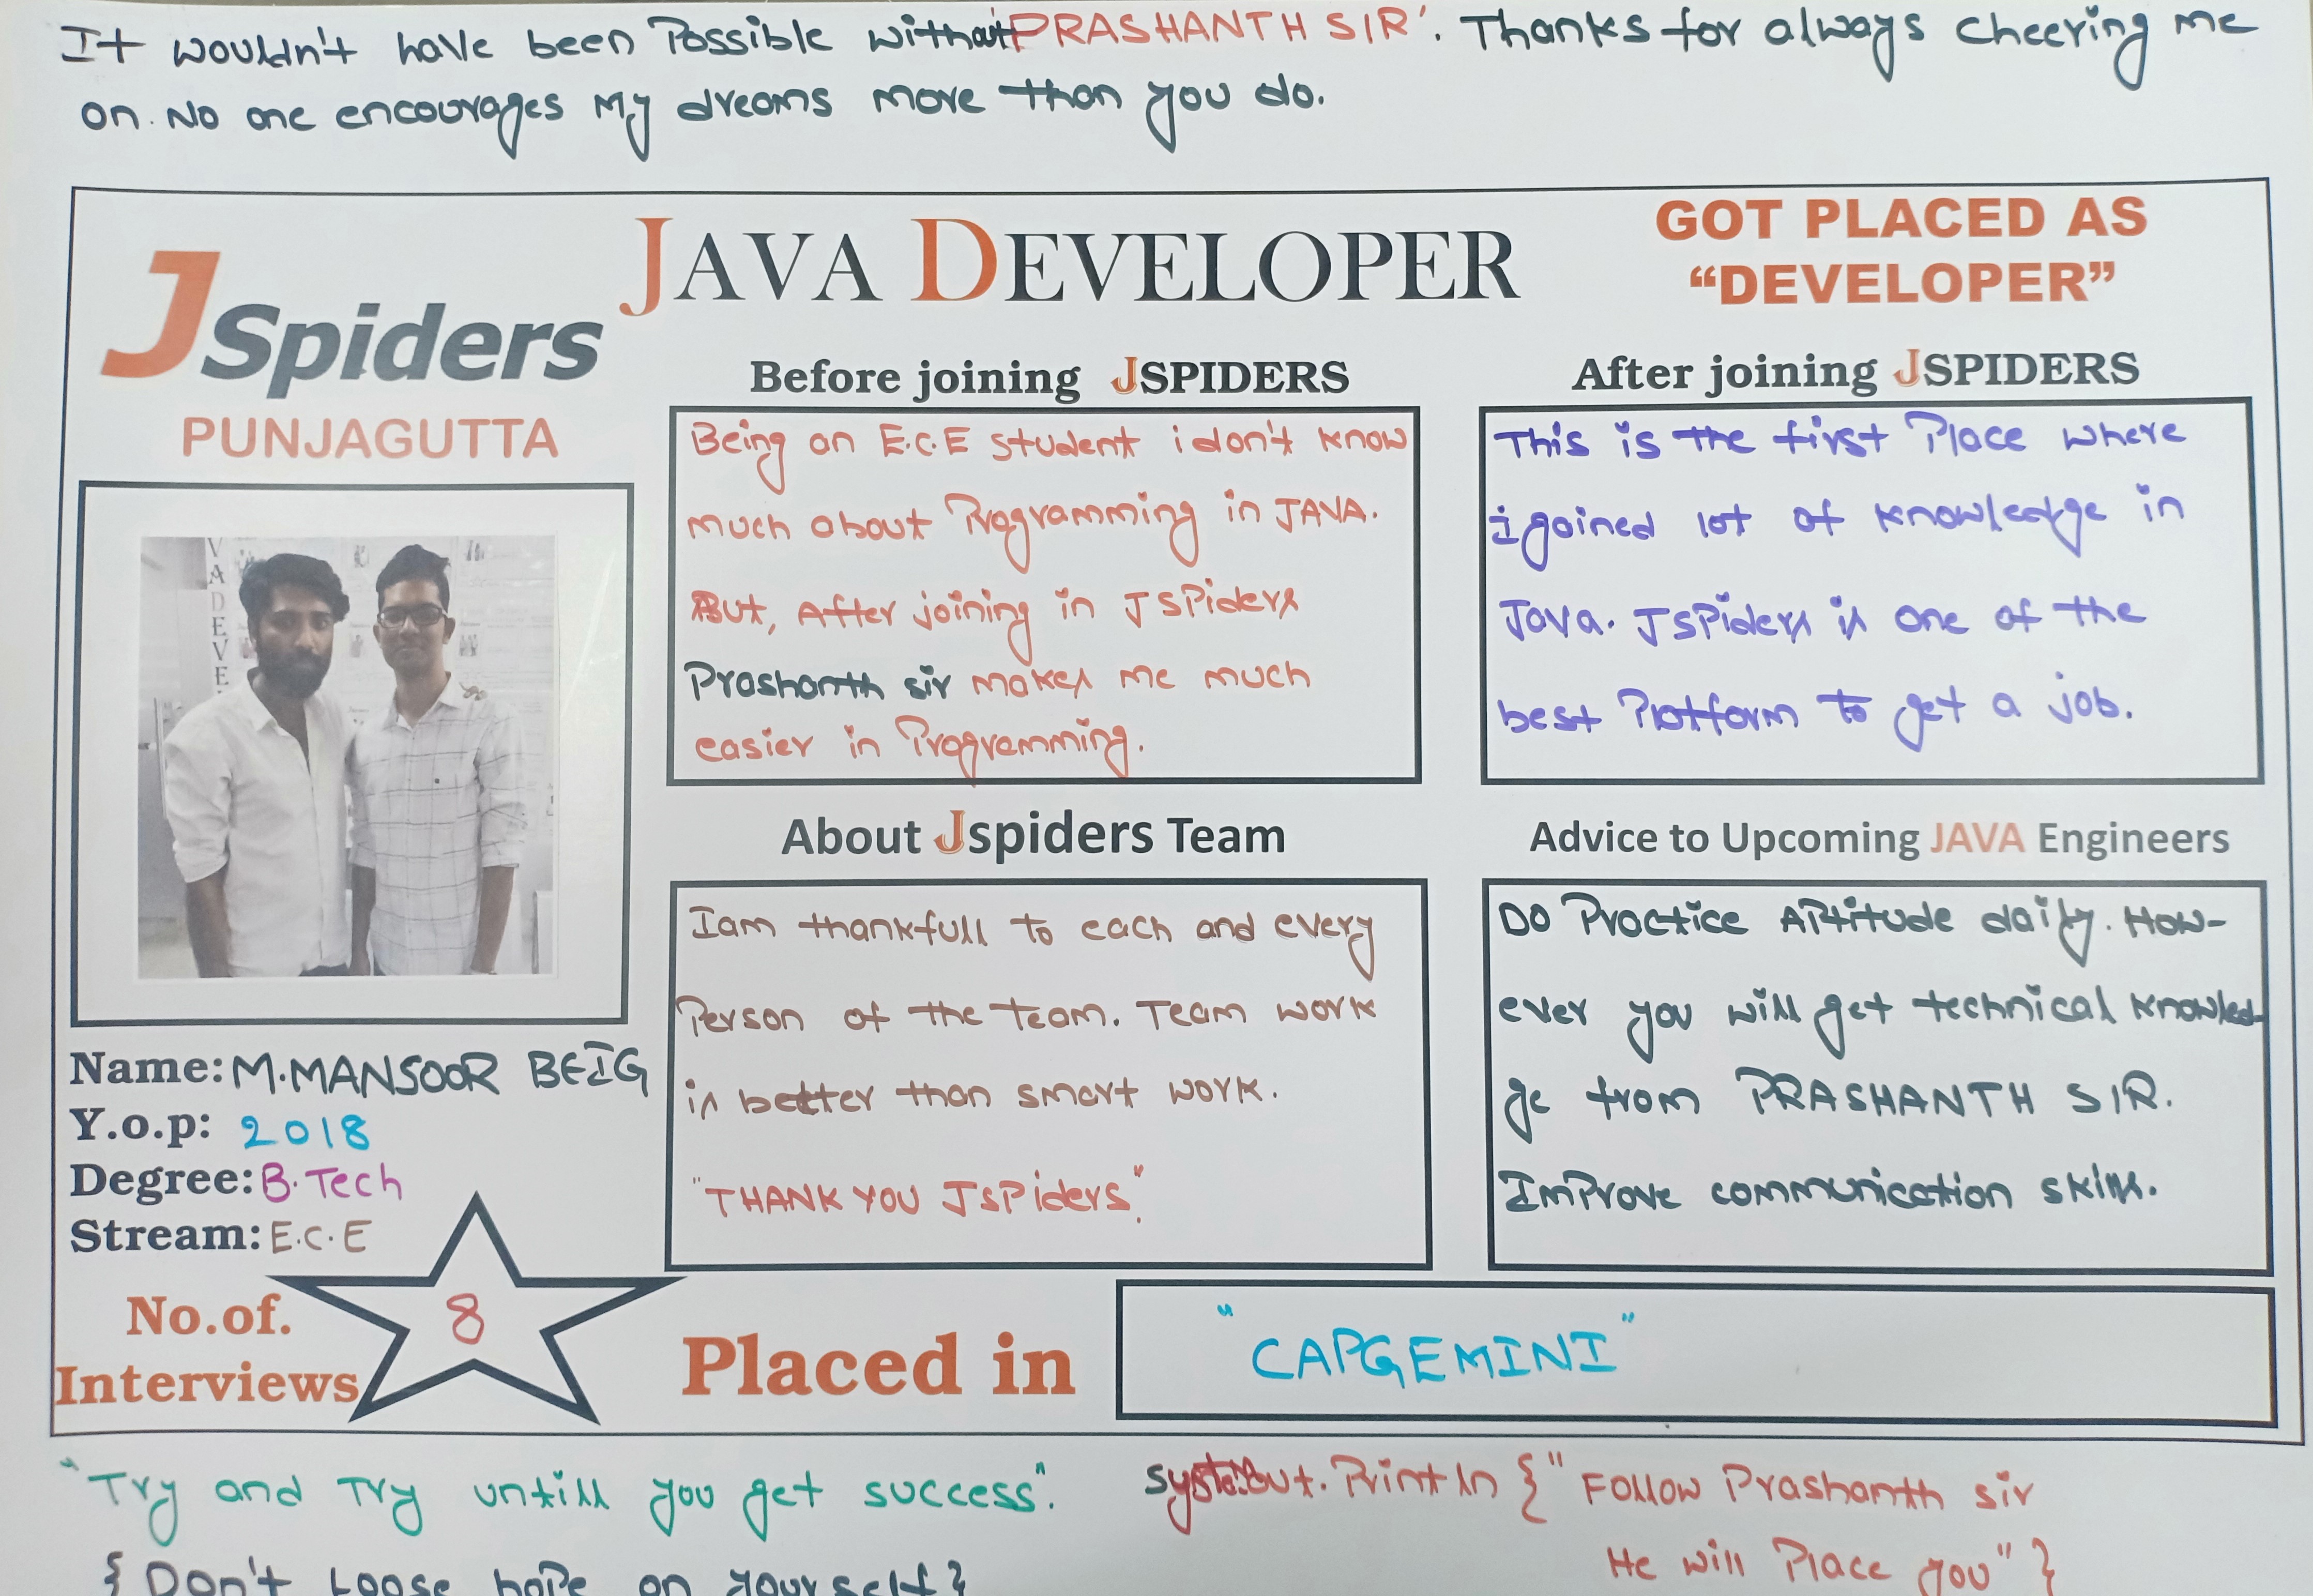 It wouldn't have been Possible without 'PRASHANTH SIR'. Thanks for always cheering me
on. No one encourages My dreams more than you do.
JAVA DEVELOPER
GOT PLACED AS
“DEVELOPER”
JSpiders
PUNJAGUTTA
Before joining JSPIDERS
Being an E.C.E student i don't know
much about Programming in JAVA.
But, After joining in JSPiders
Prashanth sir makes me much
easier in Programming.
After joining JSPIDERS
This is the first Place where
i gained lot of knowledge in
Java. JSPiders is one of the
best Platform to get a job.
V
A
D
E
V
E
About Jspiders Team
I am thankfull to each and every
Person of the team. Team work
is better than smart work.
"THANK YOU JSPiders".
Advice to Upcoming JAVA Engineers
DO Practice APtitude daily. How-
ever you will get technical knowled-
ge from PRASHANTH SIR.
Improve communication skills.
Name: M.MANSOOR BEIG
Y.o.p: 2018
Degree: B.Tech
Stream: E.C.E
No.of.
Interviews
8
Placed in
"CAPGEMINI"
"Try and Try untill you get success".
System.out.Println {"Follow Prashanth sir
He will Place you"}
{Don't Loose hope on yourself}